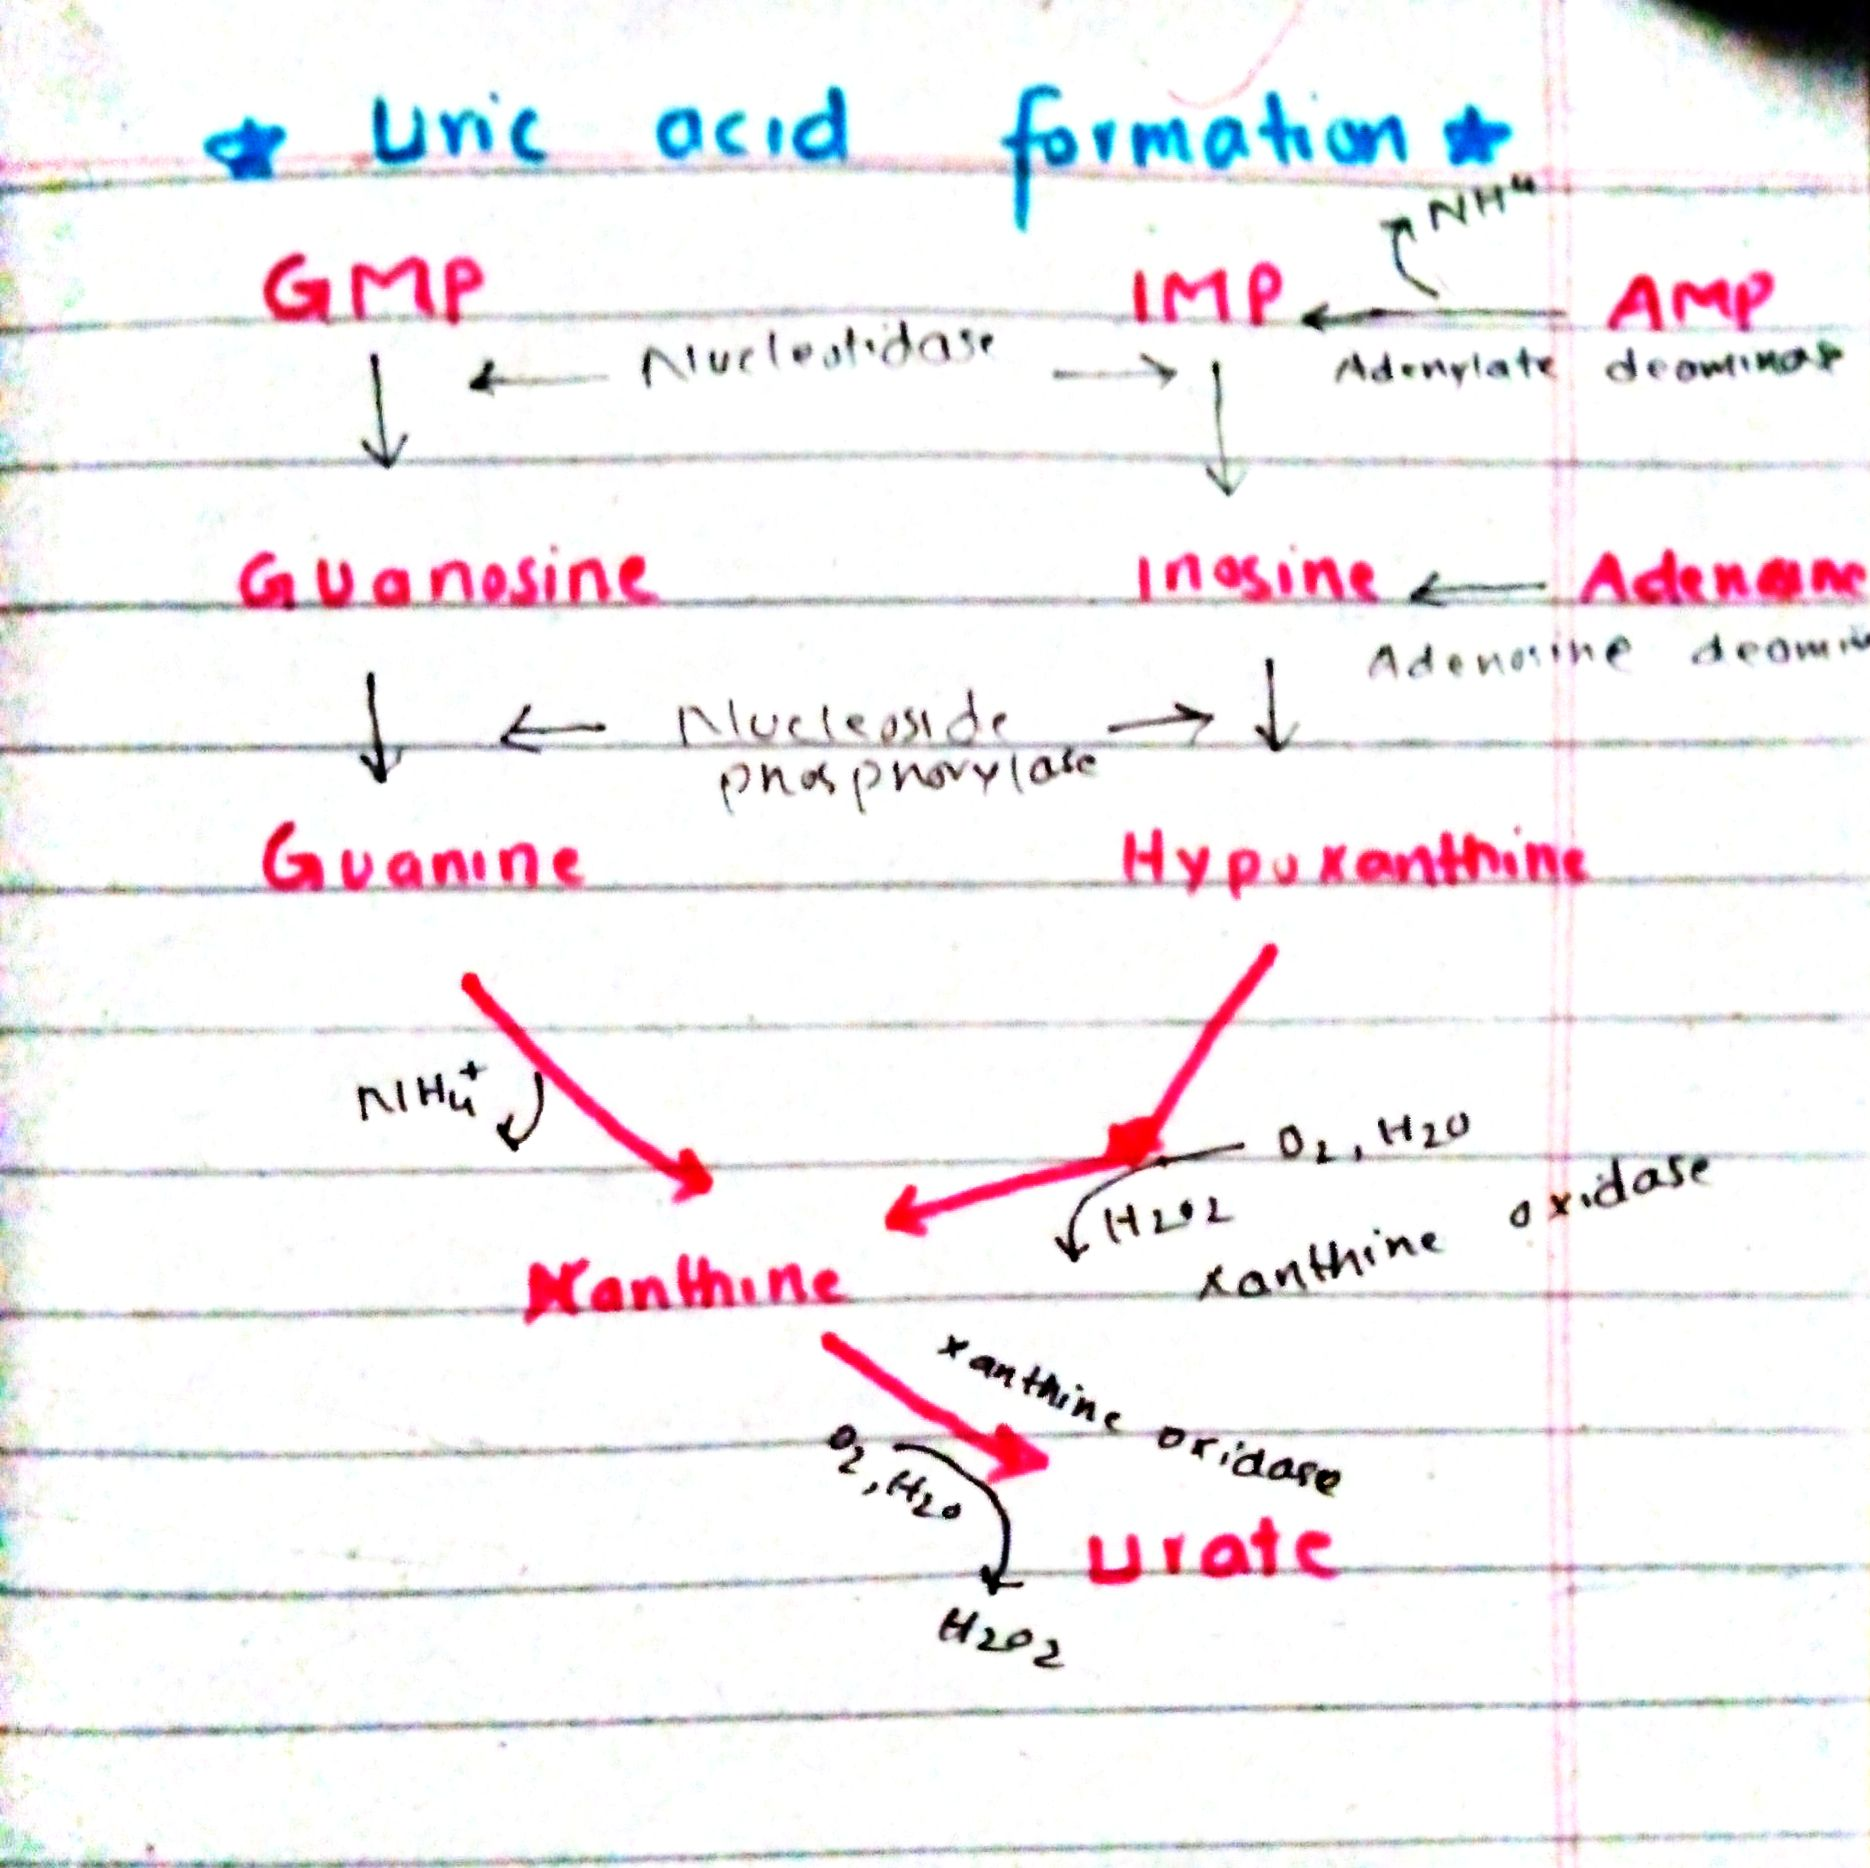 ★ Uric acid formation ★
NH4
GMP IMP ← AMP
← Nucleotidase → Adenylate deaminase
Guanosine Inosine ← Adenosine
Adenosine deami
← Nucleoside →
phosphorylase
Guanine Hypoxanthine
NH4+
O2, H2O
H2O2
xanthine oxidase
Xanthine
xanthine oxidase
O2, H2O
urate
H2O2